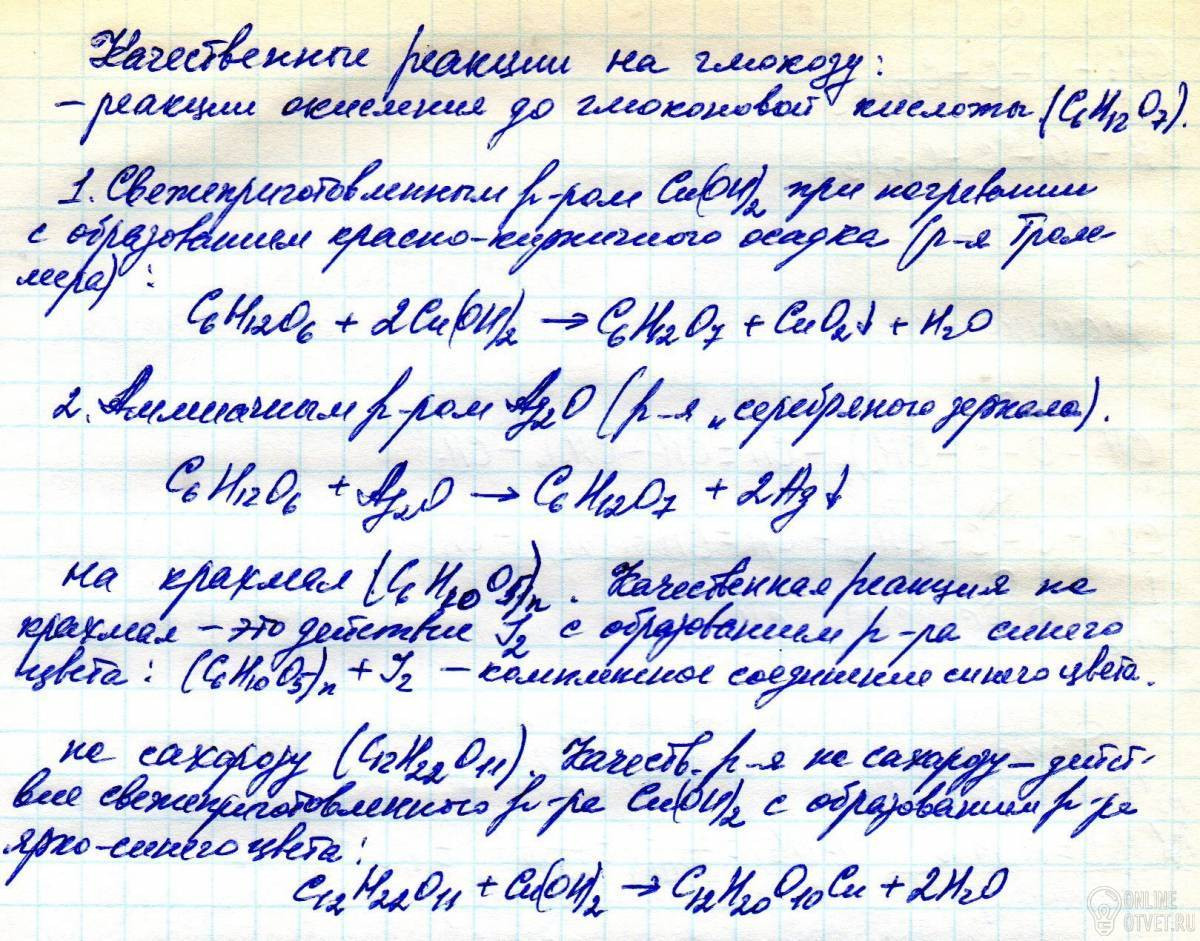 Качественные реакции на глюкозу:
– реакции окисления до глюконовой кислоты (C₆H₁₂O₇).
1. Свежеприготовленным р-ром Cu(OH)₂ при нагревании
с образованием красно-кирпичного осадка (р-я Тром-
мера):
C₆H₁₂O₆ + 2Cu(OH)₂ → C₆H₁₂O₇ + CuO₂↓ + H₂O
2. Аммиачным р-ром Ag₂O (р-я „серебряного зеркала).
C₆H₁₂O₆ + Ag₂O → C₆H₁₂O₇ + 2Ag↓
на крахмал (C₆H₁₀O₅)ₙ. Качественная реакция на
крахмал – это действие I₂ с образованием р-ра синего
цвета: (C₆H₁₀O₅)ₙ + I₂ – комплексное соединение синего цвета.
на сахарозу (C₁₂H₂₂O₁₁). Качеств. р-я на сахарозу – дейст-
вие свежеприготовленного р-ра Cu(OH)₂ с образованием р-ра
ярко-синего цвета:
C₁₂H₂₂O₁₁ + Cu(OH)₂ → C₁₂H₂₀O₁₀Cu + 2H₂O
ONLINE
OTVET.RU